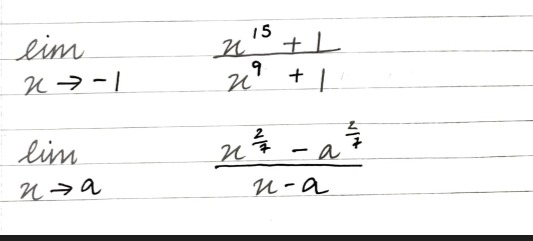 lim x → -1 (x^15 + 1)/(x^9 + 1)
lim x → a (x^(2/7) - a^(2/7))/(x - a)